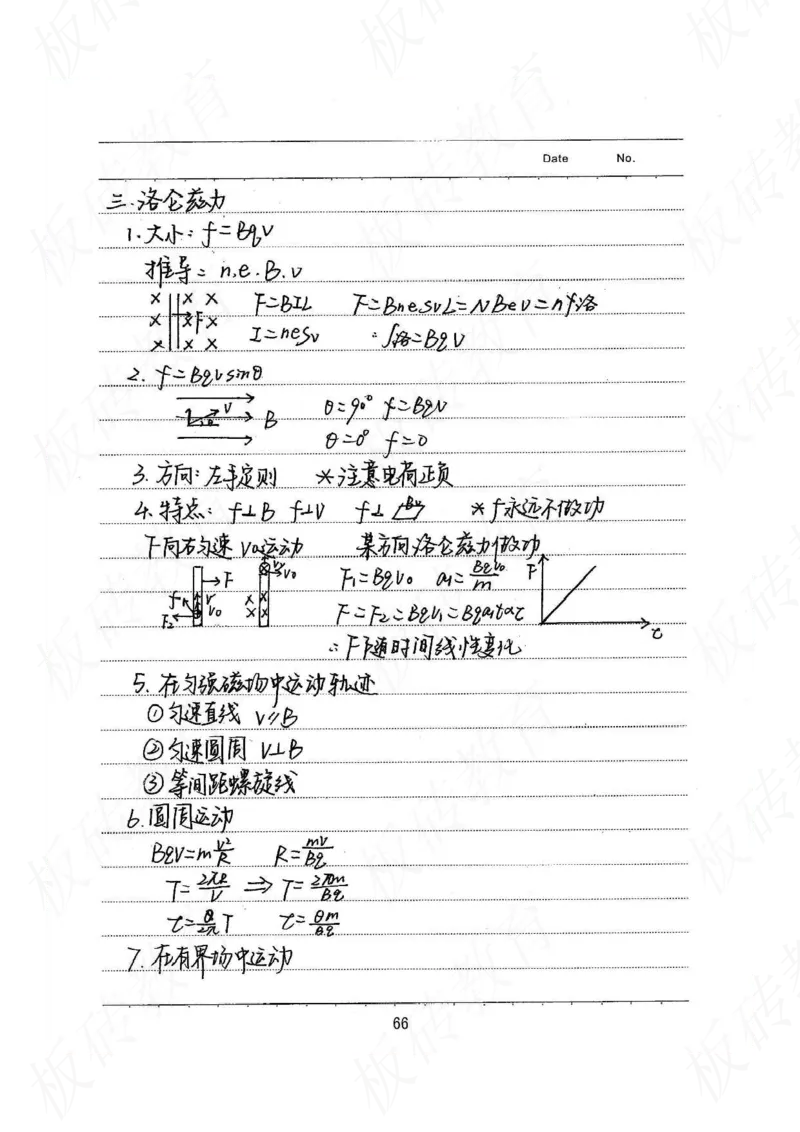 Date No.
三.洛仑兹力
1.大小：f=Bqv
推导：n.e.B.v
× × × F=BIL F=BnesvL=NBev=nf洛
× × F × I=nesv ∴f洛=Bqv
× × ×
2. f=Bqvsinθ
v B θ=90° f=Bqv
θ=0° f=0
3.方向：左手定则 *注意电荷正负
4.特点：f⊥B f⊥v f⊥ Bv *f永远不做功
F向右匀速v0运动 某方向洛仑兹力做功
F f v v0 F2 v0 × × × × F1=Bqv0 a1=Bqv0/m F
F=F2=Bqv1=Bqa1t∝t t
∴F随时间线性变化
5.在匀强磁场中运动轨迹
①匀速直线 v∥B
②匀速圆周 v⊥B
③等间距螺旋线
6.圆周运动
Bqv=mv²/R R=mv/Bq
T=2πR/v ⇒ T=2πm/Bq
t=θ/2π T t=θm/Bq
7.在有界场中运动
66
板砖教育